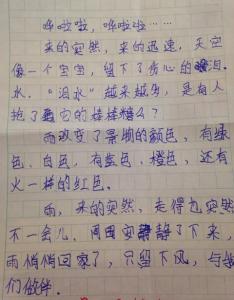 哗啦啦，哗啦啦……
来的突然，来的迅速，天空
像一个宝宝，留下了伤心的泪
水。“泪水”越来越多，是有人
抢了它的棒棒糖么？
雨改变了景物的颜色，有绿
色、白色，有蓝色、橙色，还有
火一样的红色。
雨，来的突然，走得也突然
不一会儿，周围安静了下来，
雨悄悄回家了，只留下风，与她
们做伴。